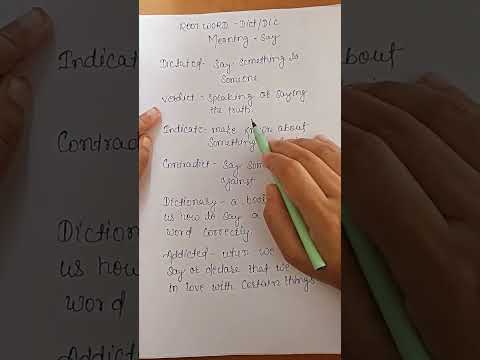 ROOT WORD - Dict/DIC
Meaning - Say
Dictated - Say something to
someone
Verdict - Speaking or saying
the truth
Indicate - make about
something
Contradict - Say
against
Dictionary - a
us how to say a
word correctly
Addicted - when we
say or declare that we
in love with certain things